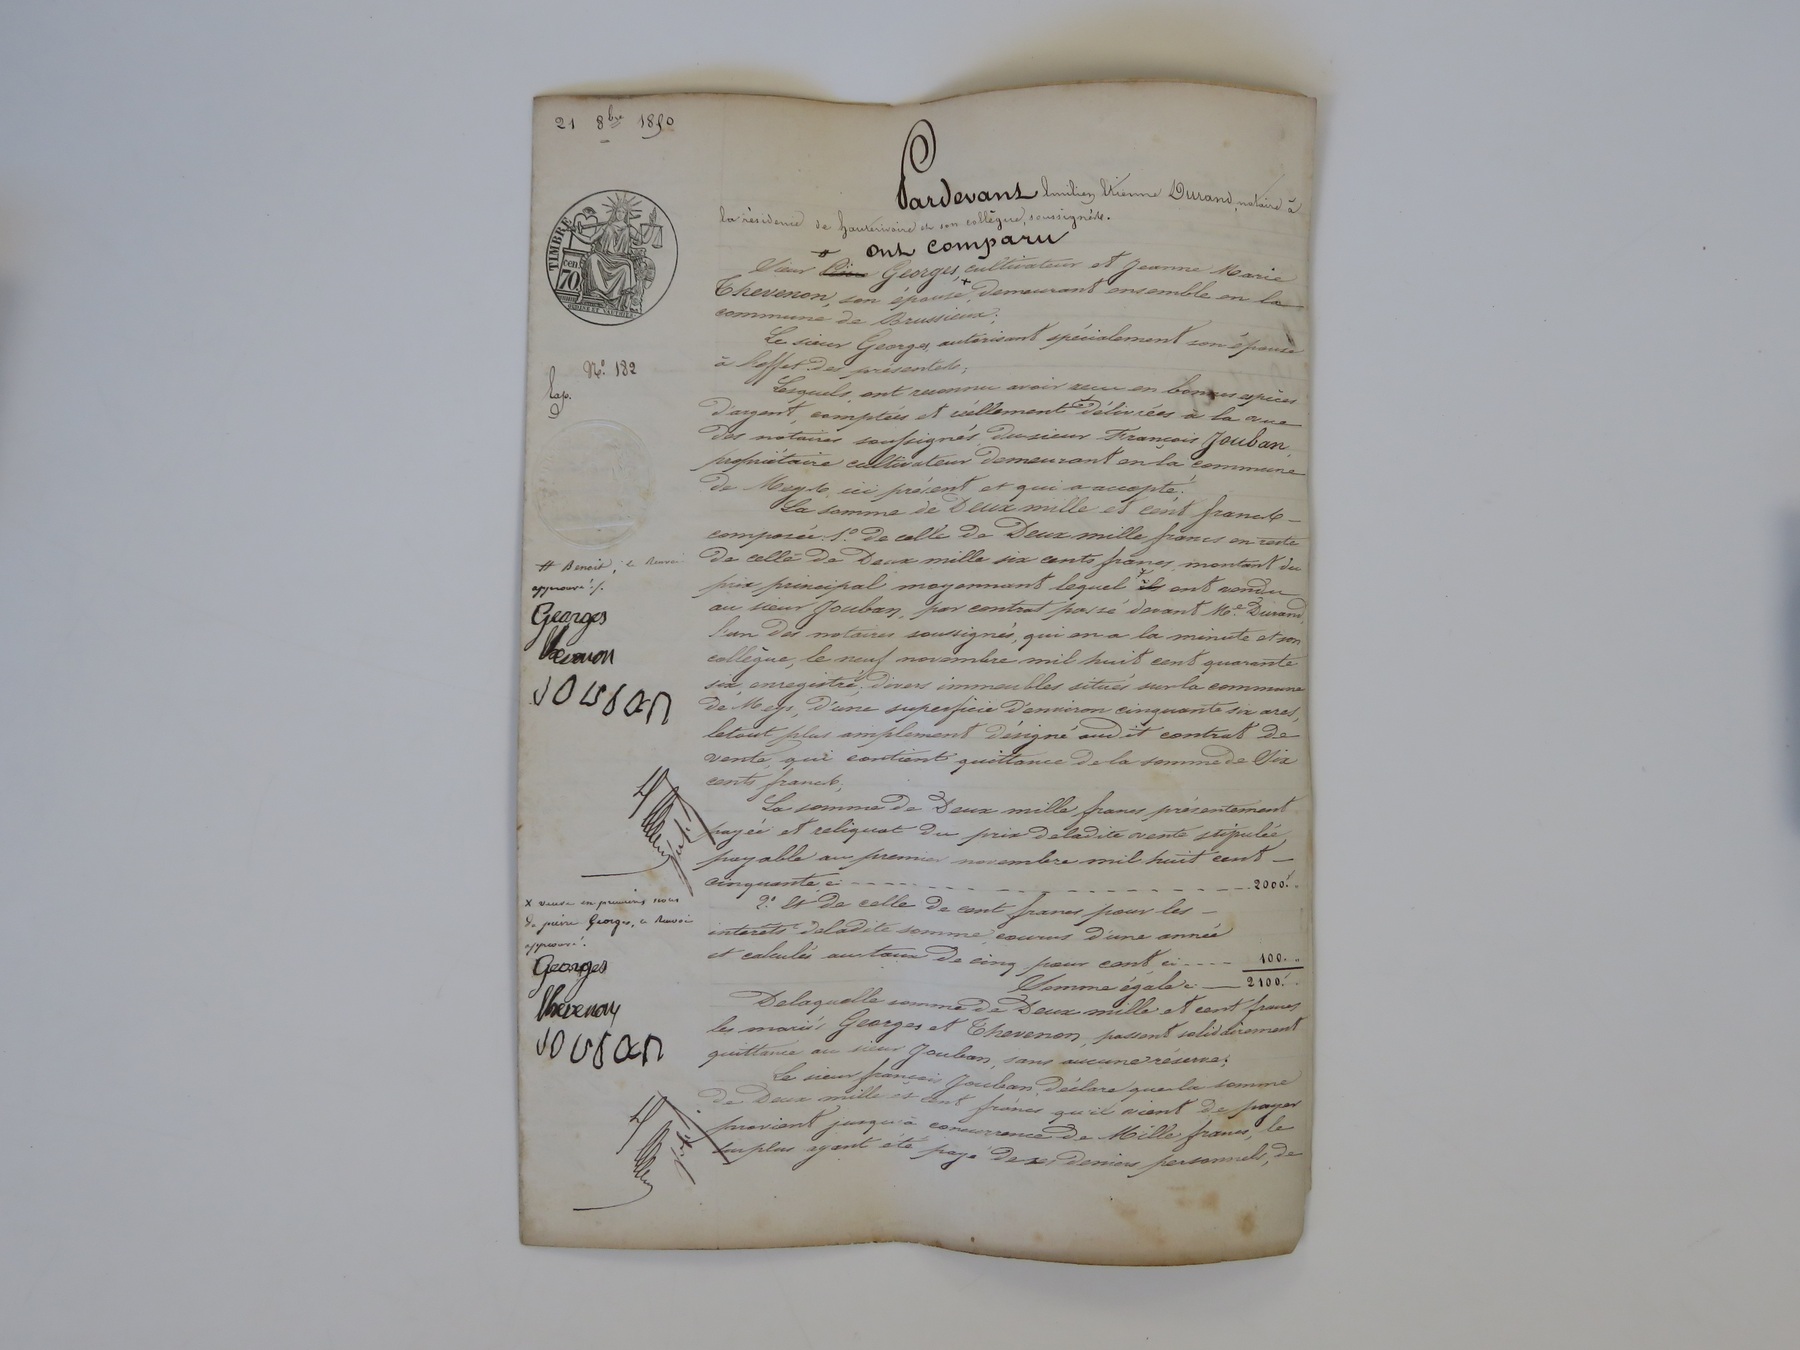 21 8bre 1850
Pardevant Emilien Etienne Durand, notaire à
la résidence de hauterivoire et son collègue, soussignés.
ont comparu
TIMBRE
cen.
70
Sieur Georges, cultivateur et Jeanne Marie
Thevenon, son épouse, + demeurant ensemble en la
commune de Brussieux;
Le sieur Georges, autorisant spécialement son épouse
à l'effet des présentes;
No. 182
Lesquels, ont reconnu avoir reçu en bonnes espèces
d'argent, comptées et réellement délivrées à la vue
des notaires soussignés, du sieur François Jouban,
propriétaire cultivateur demeurant en la commune
de Meys, ici présent et qui a accepté.
La somme de Deux mille et cent francs
composée 1o. De celle de Deux mille francs en reste
de celle de Deux mille six cents francs, montant du
prix principal moyennant lequel ils ont vendu
au sieur Jouban, par contrat passé devant Me. Durand,
l'un des notaires soussignés, qui en a la minute et son
collègue, le neuf novembre mil huit cent quarante
six, enregistré, divers immeubles situés sur la commune
de Meys, d'une superficie d'environ cinquante six ares,
le tout plus amplement désigné audit contrat de
vente, qui contient quittance de la somme de Six
cents francs;
# Benoit, ce Renvoi
approuvé ./.
Georges
thevenon
jouban
La somme de Deux mille francs présentement
payée et reliquat du prix de ladite vente stipulée
payable au premier novembre mil huit cent
cinquante, ci 2000.f
2o. Et de celle de cent francs pour les
interêts de ladite somme, courus d'une année
et calculés au taux de cinq pour cent ci 100.
Somme égale ci 2100.f
x veuve en premières noces
de pierre Georges, ce Renvoi
approuvé.
Georges
thevenon
jouban
De laquelle somme de Deux mille et cent francs
les mariés Georges et Thevenon, passent solidairement
quittance au sieur Jouban, sans aucune réserve;
Le sieur françois Jouban, déclare que la somme
de Deux mille et cent francs qu'il vient de payer
provient jusqu'à concurrence de Mille francs, le
surplus ayant été payé de ses deniers personnels, de